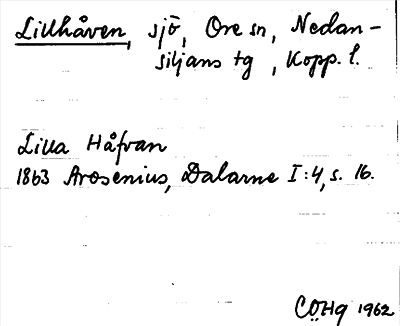 Lillhåven, sjö, Ore sn, Nedan-
siljans tg, Kopp. l.
Lilla Håfvan
1863 Arosenius, Dalarne I:4, s. 16.
CÖHg 1962